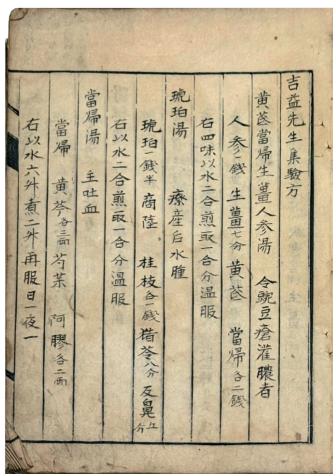 吉益先生集驗方
黃芪當帰生薑人参湯　令豌豆瘡灌膿者
人参一錢　生薑七分　黃芪　當帰各二錢
右四味以水二合煎取一合分温服
琥珀湯　療産后水腫
琥珀一錢半　商陸　桂枝各一錢　猪苓八分　反鼻五分
右以水二合煎取一合分温服
當帰湯　主吐血
當帰　黃芩各三両　芍薬　阿膠各二両
右以水六升煮二升再服日二夜一